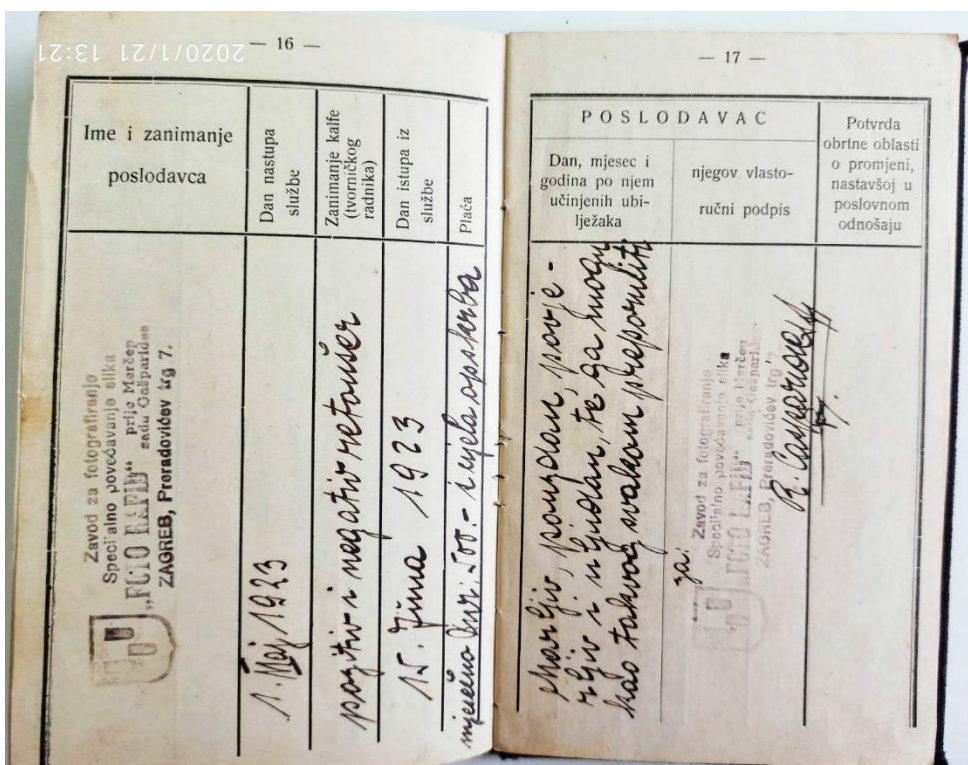 2020/1/21 13:21
— 16 —
Ime i zanimanje
poslodavca
Dan nastupa
službe
Zanimanje kalfe
(tvorničkog
radnika)
Dan istupa iz
službe
Plaća
Zavod za fotografiranje
Specijalno povećavanje slika
„FOTO RAPID“ prije Merćep
sada Gašparides
ZAGREB, Preradovićev trg 7.
1. Maj 1923
pozitiv i negativ retoušer
15. Juna 1923
mjesečno Din. 500.- i cijela opskrba
— 17 —
POSLODAVAC
Dan, mjesec i
godina po njem
učinjenih ubi-
lježaka
njegov vlasto-
ručni podpis
Potvrda
obrtne oblasti
o promjeni,
nastavšoj u
poslovnom
odnošaju
marljiv, pouzdan, povje-
rljiv i uljudan, te ga mogu
kao takvog svakom preporučiti
za:
Zavod za fotografiranje
Specijalno povećavanje slika
„FOTO RAPID“ prije Merćep
sada Gašparides
ZAGREB, Preradovićev trg 7.